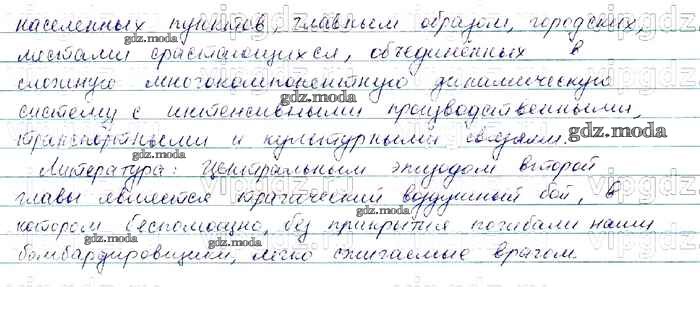 населенных пунктов, главным образом, городских,
местами срастающихся, объединённых в
сложную многокомпонентную динамическую
систему с интенсивными производственными,
транспортными и культурными связями.
Литература: Центральным эпизодом второй
главы является трагический воздушный бой, в
котором беспомощно, без прикрытия погибали наши
бомбардировщики, легко сжигаемые врагом